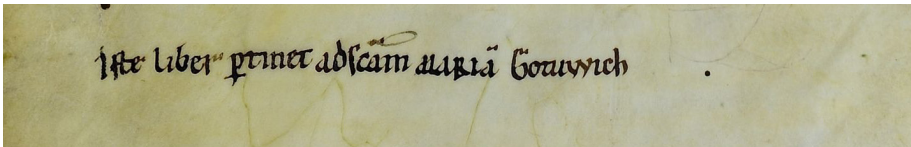 Iste liber ꝑtinet ad scām mariā Gotuwich